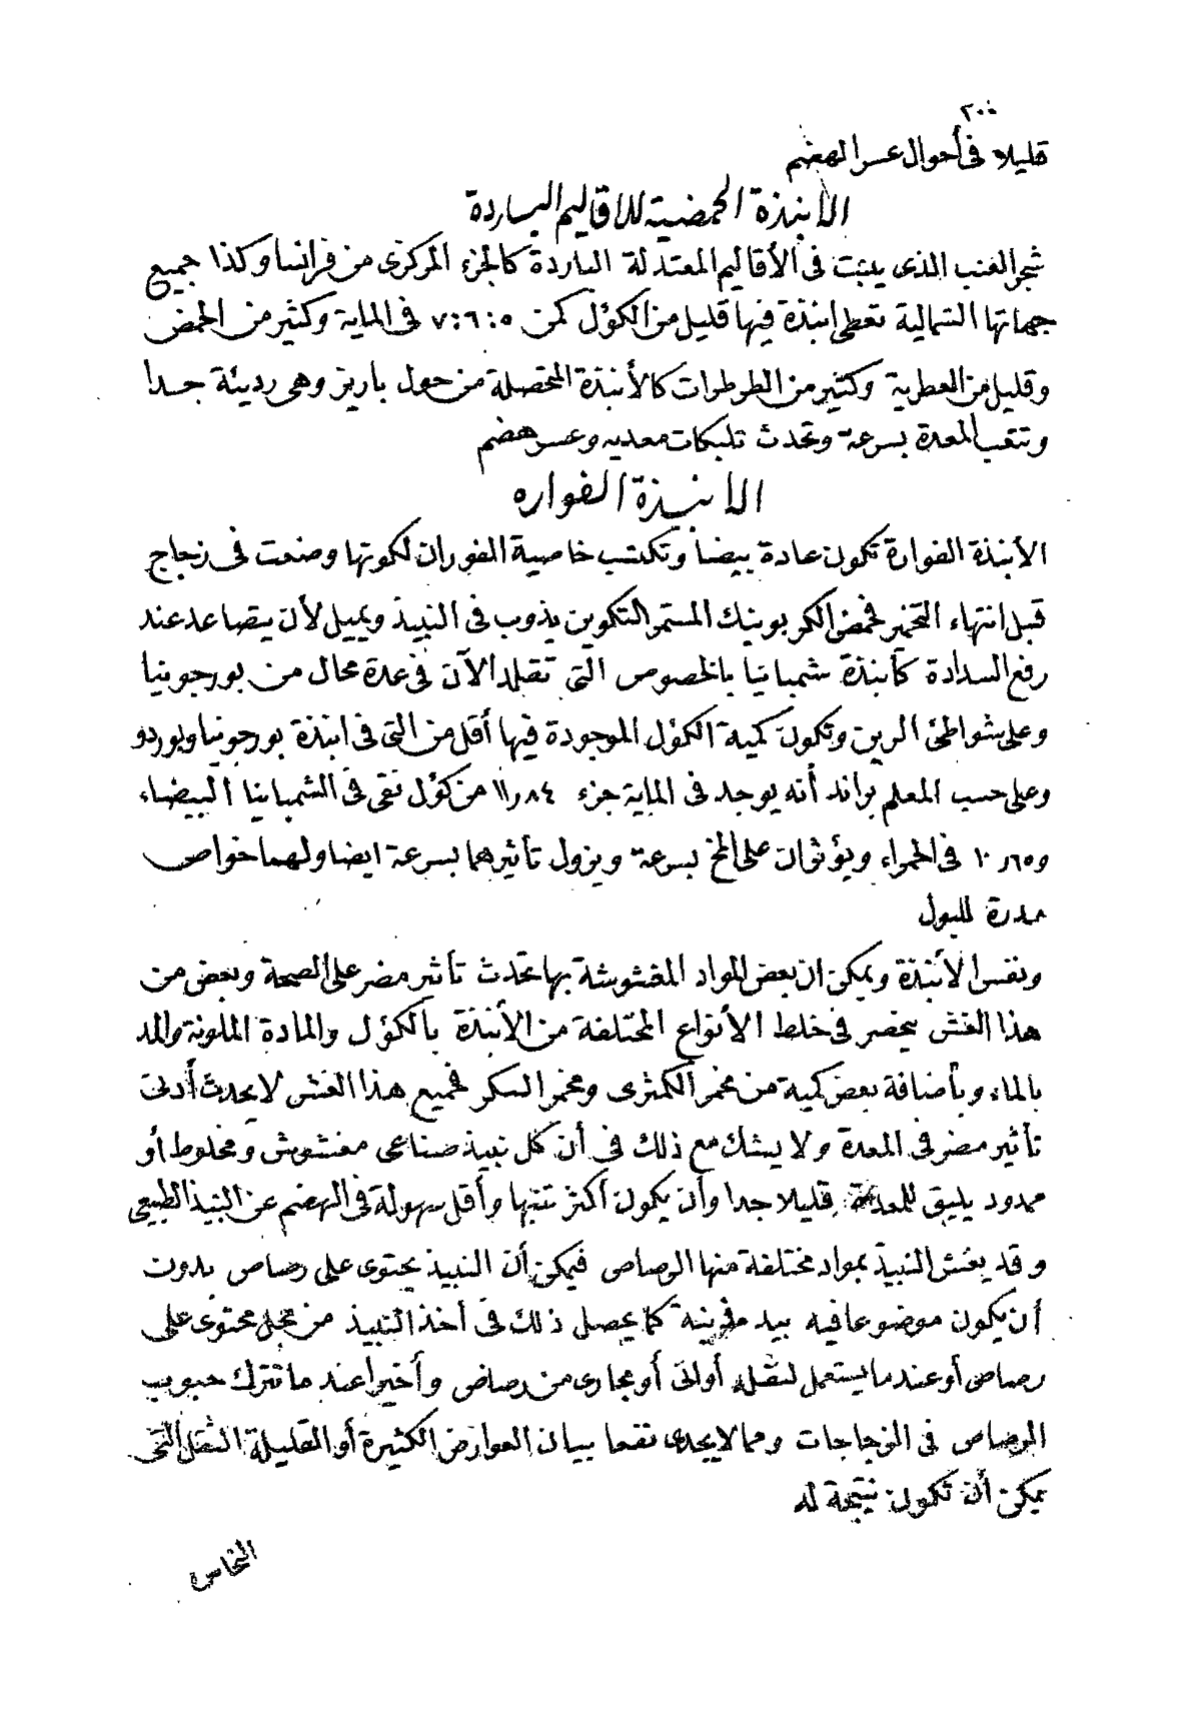 ٢٠٠
قليلا فى أحوال عسر الهضم
الأنبذة الحمضية للاقاليم الباردة
شجر العنب الذى ينبت فى الأقاليم المعتدلة الباردة كالجزء المركزى من فرانسا وكذا جميع
جهاتها الشمالية تعطى انبذة فيها قليل من الكؤل كمن ٥ : ٦ : ٧ فى الماية وكثير من الحمض
وقليل من العطرية وكثير من الطرطرات كالأنبذة المتحصلة من حول باريز وهى رديئة جدا
وتتعب المعدة بسرعة وتحدث تلبكات معديه وعسر هضم
الانبذة الفواره
الأنبذة الفوارة تكون عادة بيضاً وتكتسب خاصية الفوران لكونها وضعت فى زجاج
قبل انتهاء التخمر فحمض الكربونيك المستمر التكوين يذوب فى النبيذ ويميل لأن يتصاعد عند
رفع السدادة كأنبذة شمبانيا بالخصوص التى تقلد الآن فى عدة محال من بورجونيا
وعلى شواطئ الرين وتكون كمية الكؤل الموجودة فيها أقل من التى فى انبذة بورجونيا وبوردو
وعلى حسب المعلم براند أنه يوجد فى الماية جزء ١١٫٨٤ من كؤل نقى فى الشمبانيا البيضاء
و١٠٫٦٥ فى الحمراء ويؤثران على المخ بسرعة ويزول تأثيرهما بسرعة ايضا ولهما خواص
مدرة للبول
ونفس الأنبذة ويمكن ان بعض المواد المغشوشة بها تحدث تأثير مضر على الصحة وبعض من
هذا الغش ينحصر فى خلط الأنواع المختلفة من الأنبذة بالكؤل والمادة الملونة والمد
بالماء وبأضافة بعض كمية من مخمر الكمثرى ومخمر السكر فجميع هذا الغش لا يحدث أدنى
تأثير مضر فى المعدة ولا يشك مع ذلك فى أن كل نبيذ صناعى مغشوش ومخلوط أو
ممدود يليق للمعدة قليلا جدا وأن يكون أكثر تنبها وأقل سهولة فى الهضم عن النبيذ الطبيعى
وقد يغش النبيذ بمواد مختلفة منها الرصاص فيمكن أن النبيذ يحتوى على رصاص بدون
أن يكون موضوعا فيه بيد مغرينة كما يحصل ذلك فى أخذ النبيذ من محل محتوى على
رصاص أو عندما يستعمل لنقله أوانى أو مجارى من رصاص وأخيرا عند ما تترك حبوب
الرصاص فى الزجاجات ومما لا يجدى نفعا بيان العوارض الكثيرة أو القليلة الثقل التى
يمكن أن تكون نتيجة له
النحاس